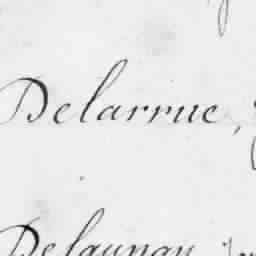 Delarrue,
Delaunay